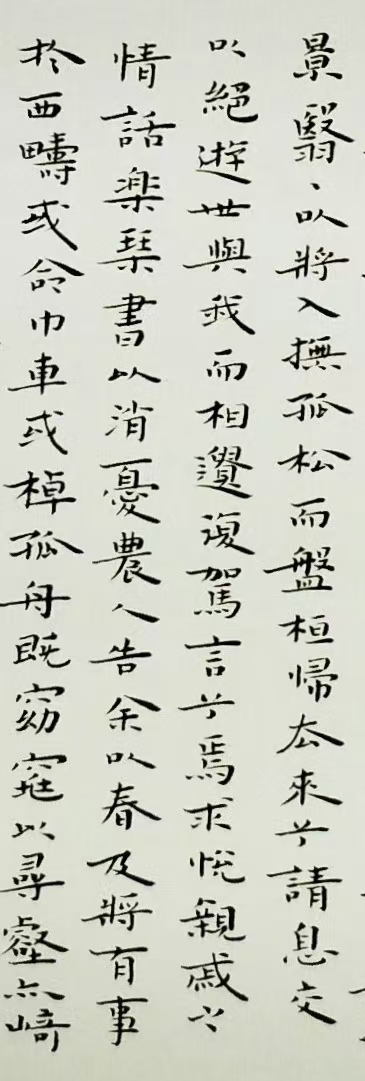 景翳、以將入撫孤松而盤桓歸去來兮請息交
以絕遊世與我而相遺復駕言兮焉求悅親戚之
情話樂琴書以消憂農人告余以春及將有事
於西疇或命巾車或棹孤舟既窈窕以尋壑亦崎